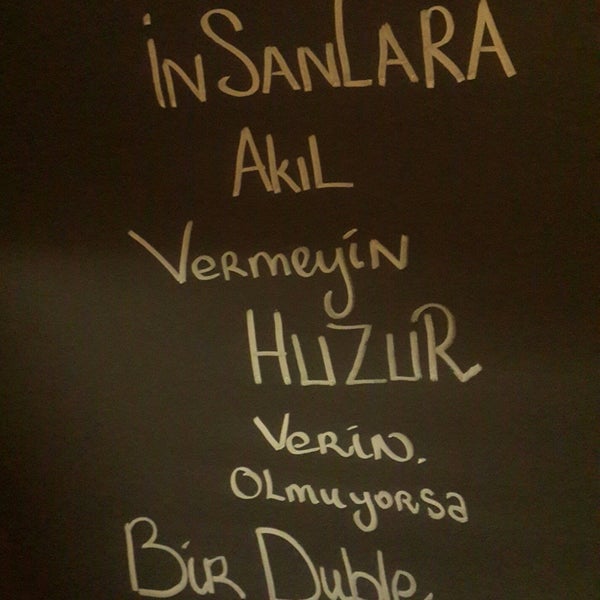 İNSANLARA
AKIL
VERMEYİN
HUZUR
VERİN.
OLMUYORSA
BİR DUBLE.